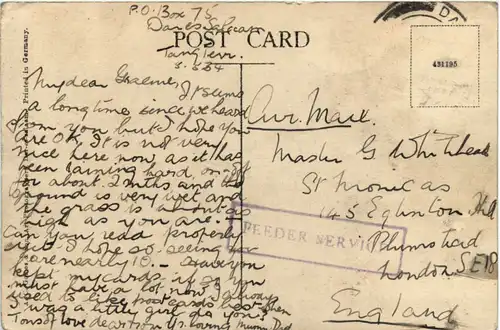 P.O. Box 75
Dar es Salaam
Tang Terr.
3.5.34
POST CARD
Printed in Germany.
431195
My dear Graeme, It seems
a long time since we heard
from you but I hope you
are OK. It is not very
nice here now, as it has
been raining hard, on & off
for about 2 mths and the
ground is very wet and
the grass is about as
high as you are.
Can you read properly
yet? I hope so, seeing you
are nearly 10. Have you
kept my cards, if so you
must have a lot now. I always
used to like post cards when
I was a little girl do you?
Tons of love dear from Yr. loving Mum & Dad
Air Mail.
Master G Whitehead
St Monicas
145 Eglinton Hill
Plumstead
London SE18
England
FEEDER SERVICE